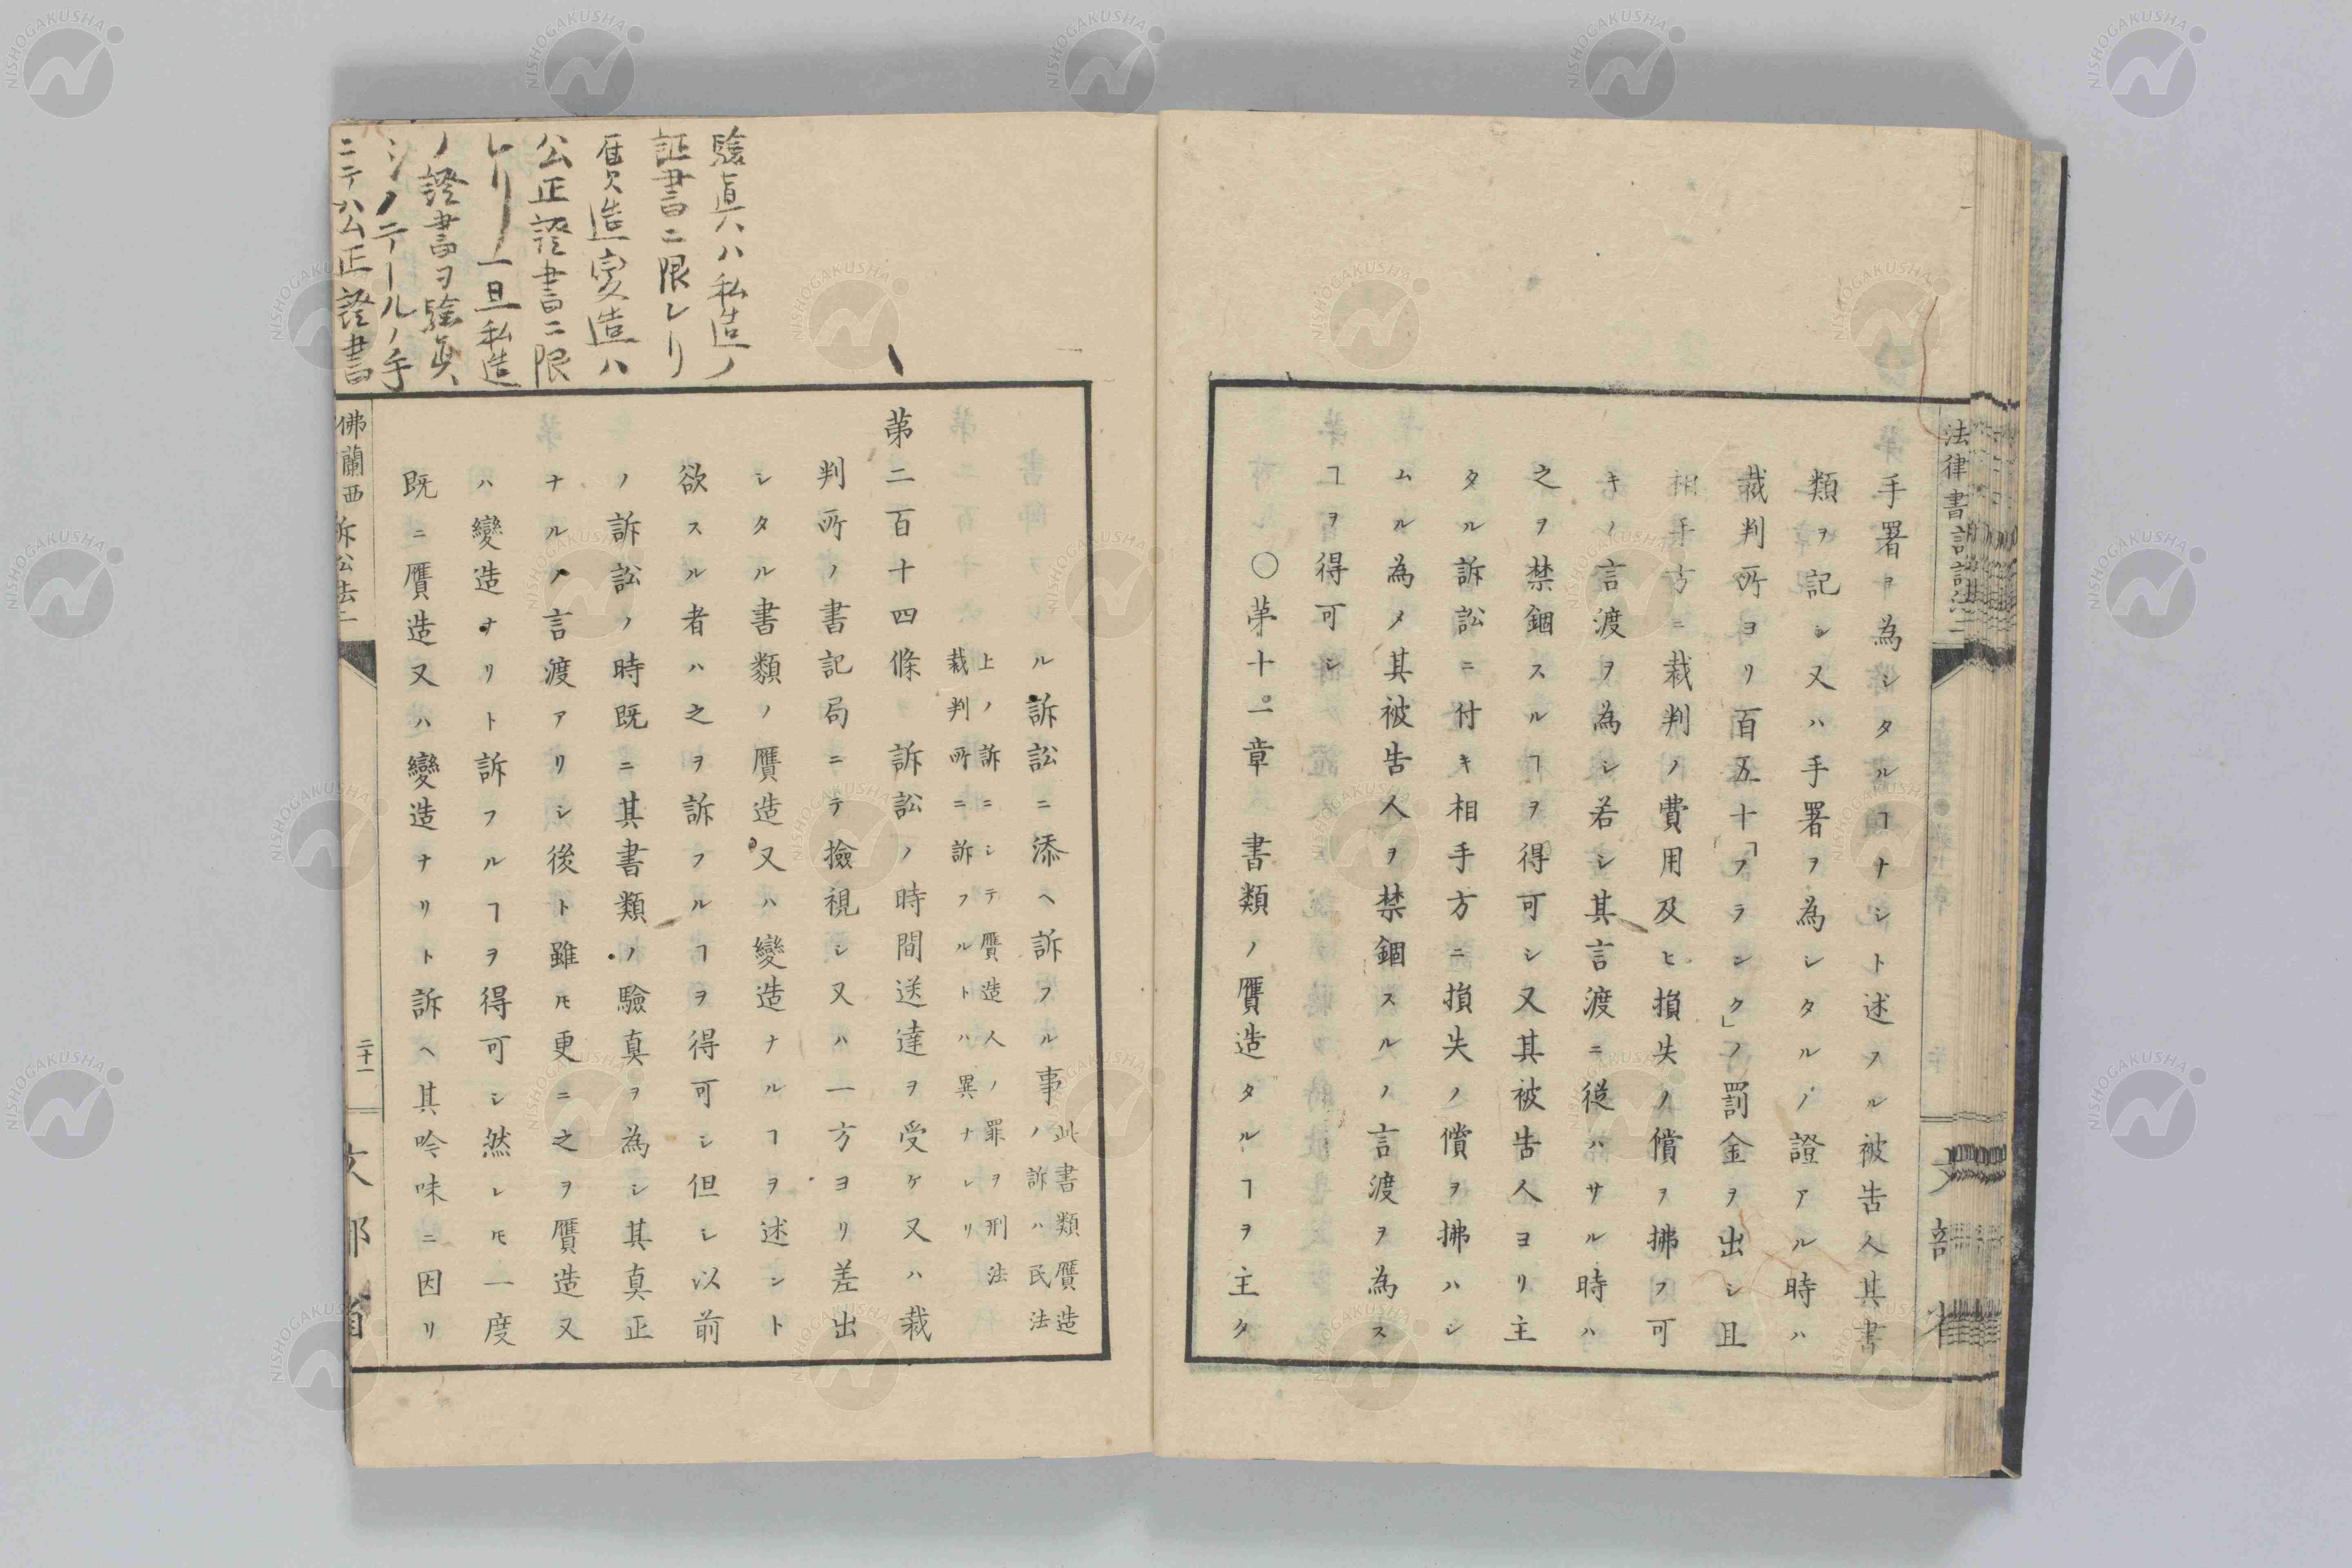 手署ヲ為シタルヿナシト述フル被告人其書
類ヲ記シ又ハ手署ヲ為シタルノ證アル時ハ
裁判所ヨリ百五十「フランク」ノ罰金ヲ出シ且
相手方ニ裁判ノ費用及ヒ損失ノ償ヲ拂フ可
キノ言渡ヲ為シ若シ其言渡ニ從ハサル時ハ
之ヲ禁錮スルヿヲ得可シ又其被告人ヨリ主
タル訴訟ニ付キ相手方ニ損失ノ償ヲ拂ハシ
ムル為メ其被告人ヲ禁錮スルノ言渡ヲ為ス
ヿヲ得可シ
○第十一章 書類ノ贋造タルヿヲ主タ
驗眞ハ私造ノ
証書ニ限レリ
贋造変造ハ
公正證書ニ限
レリ一旦私造
ノ證書ヲ驗眞
シノテールノ手
ニテハ公正證書
ル訴訟ニ添ヘ訴フル事ノ此書類贋造
訴ハ民法
上ノ訴ニシテ贋造人ノ罪ヲ刑法
裁判所ニ訴フルトハ異ナレリ
第二百十四條 訴訟ノ時間送達ヲ受ケ又ハ裁
判所ノ書記局ニテ撿視シ又ハ一方ヨリ差出
シタル書類ノ贋造又ハ變造ナルヿヲ述ント
欲スル者ハ之ヲ訴フルヿヲ得可シ但シ以前
ノ訴訟ノ時既ニ其書類ノ驗真ヲ為シ其真正
ナルノ言渡アリシ後ト雖𪜈更ニ之ヲ贋造又
ハ變造ナリト訴フルヿヲ得可シ然レ𪜈一度
既ニ贋造又ハ變造ナリト訴ヘ其吟味ニ因リ
佛蘭西訴訟法二 二十一 文部省